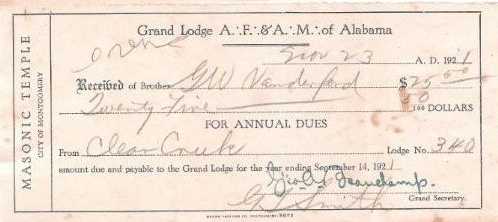 Grand Lodge A∴F.&A∴M∴of Alabama
Nov 23 A. D. 1921
Received of Brother GW Vanderford $25 00
Twenty Five 00/100 DOLLARS
FOR ANNUAL DUES
From Clear Creek Lodge No. 340
amount due and payable to the Grand Lodge for the year ending September 14, 1921
Geo A Beauchamp.
Grand Secretary.
Smith
MASONIC TEMPLE
CITY OF MONTGOMERY